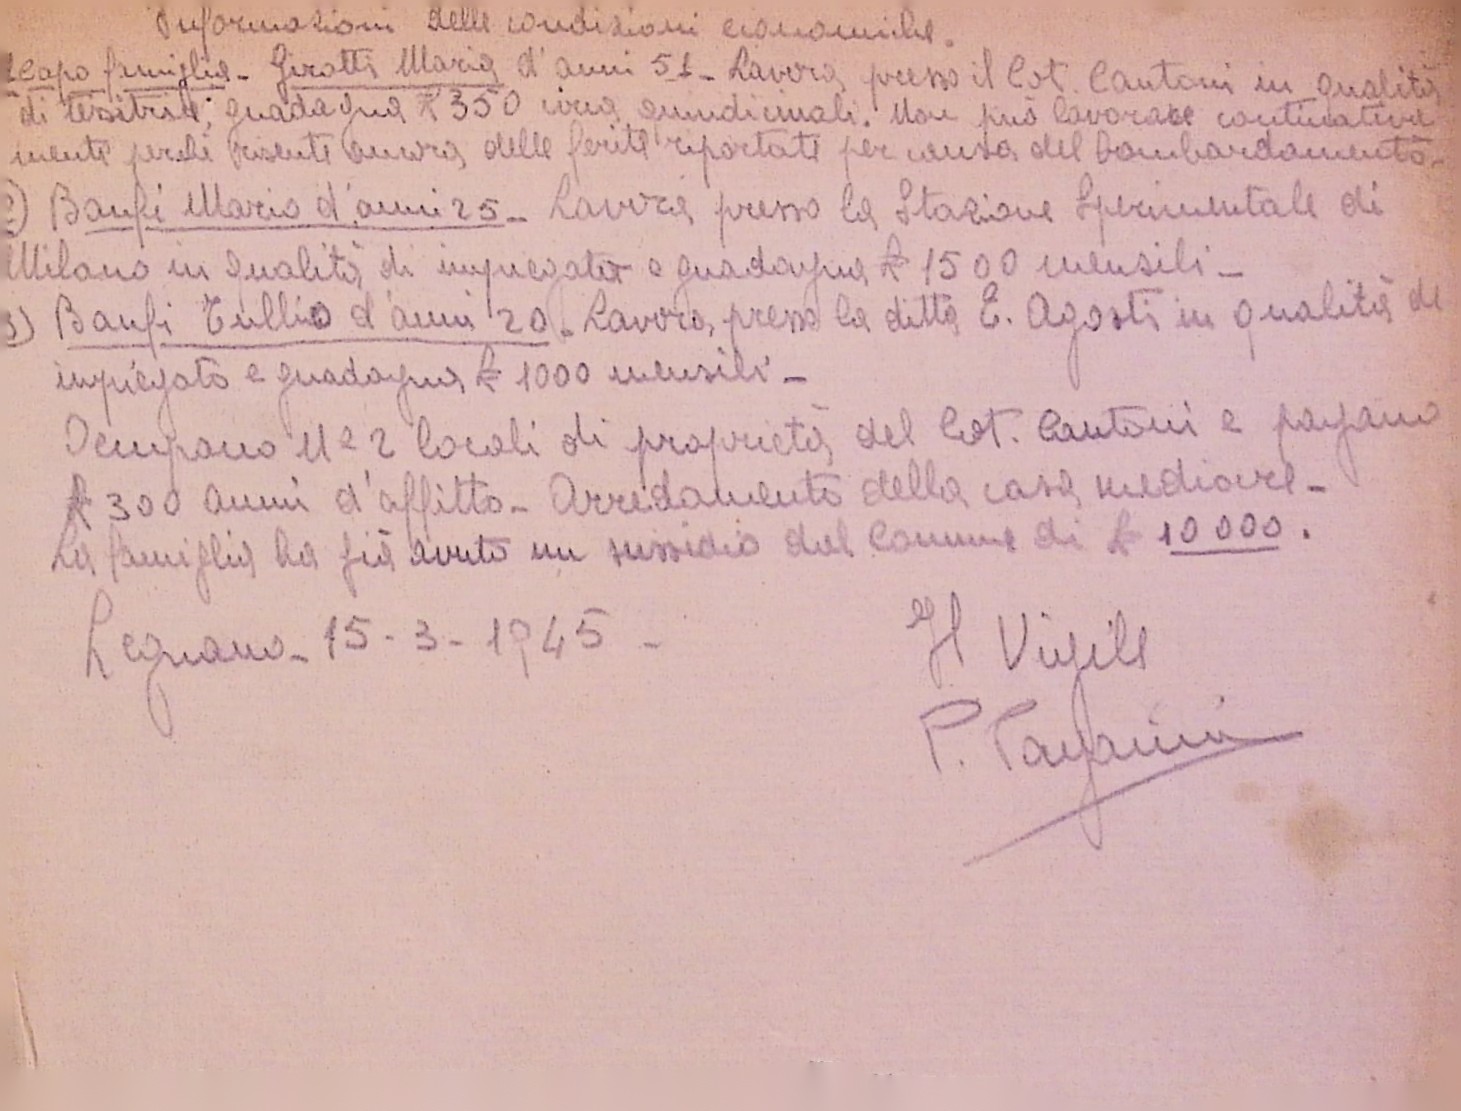 Informazioni delle condizioni economiche.
Capo famiglia - Girotti Maria d'anni 51 - Lavora presso il Cot. Cantoni in qualità
di tessitrice; guadagna £ 350 circa quindicinali. Non può lavorare continuativa
mente perché risente ancora delle ferite riportate per causa del bombardamento -
2) Banfi Mario d'anni 25 - Lavora presso la Stazione Sperimentale di
Milano in qualità di impiegato e guadagna £ 1500 mensili -
3) Banfi Tullio d'anni 20 - Lavora presso la ditta E. Agosti in qualità di
impiegato e guadagna £ 1000 mensili -
Occupano N° 2 locali di proprietà del Cot. Cantoni e pagano
£ 300 annui d'affitto - Arredamento della casa mediocre -
La famiglia ha già avuto un sussidio dal Comune di £ 10000.
Legnano - 15-3-1945 -
Il Vigile
P. Paganini